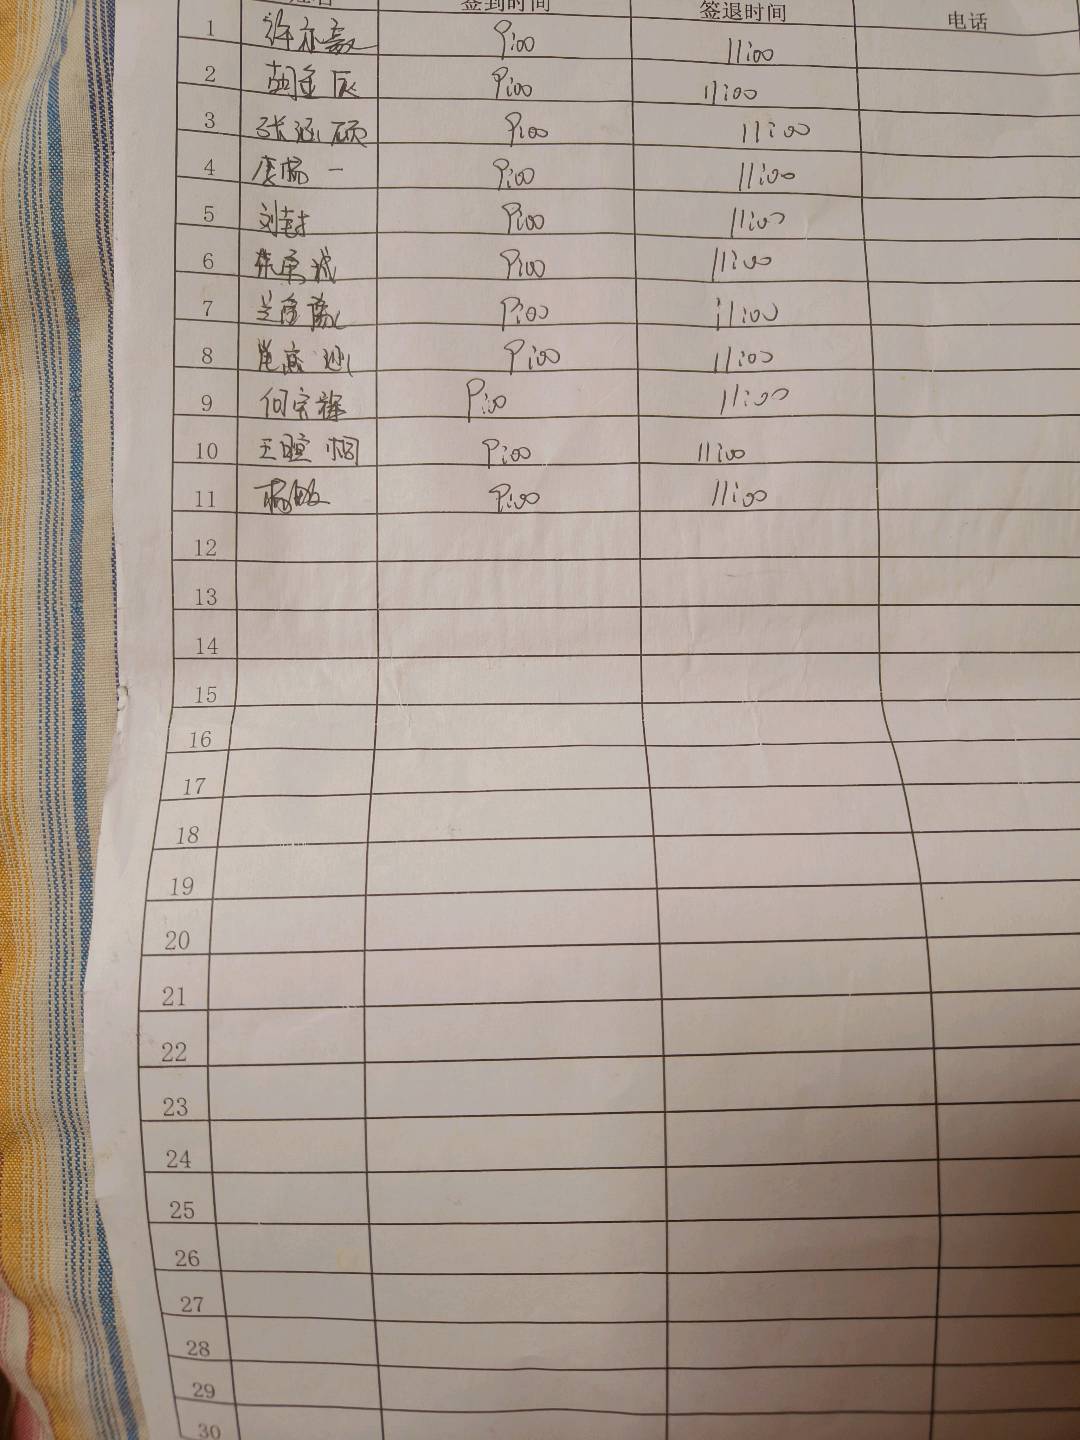 姓名 签到时间 签退时间 电话
1 许亦 9:00 11:00
2 胡 辰 9:00 11:00
3 张涵硕 9:00 11:00
4 一 9:00 11:00
5 刘封 9:00 11:00
6 9:00 11:00
7 9:00 11:00
8 9:00 11:00
9 何宗 9:00 11:00
10 王暄桐 9:00 11:00
11 杨 9:00 11:00
12
13
14
15
16
17
18
19
20
21
22
23
24
25
26
27
28
29
30